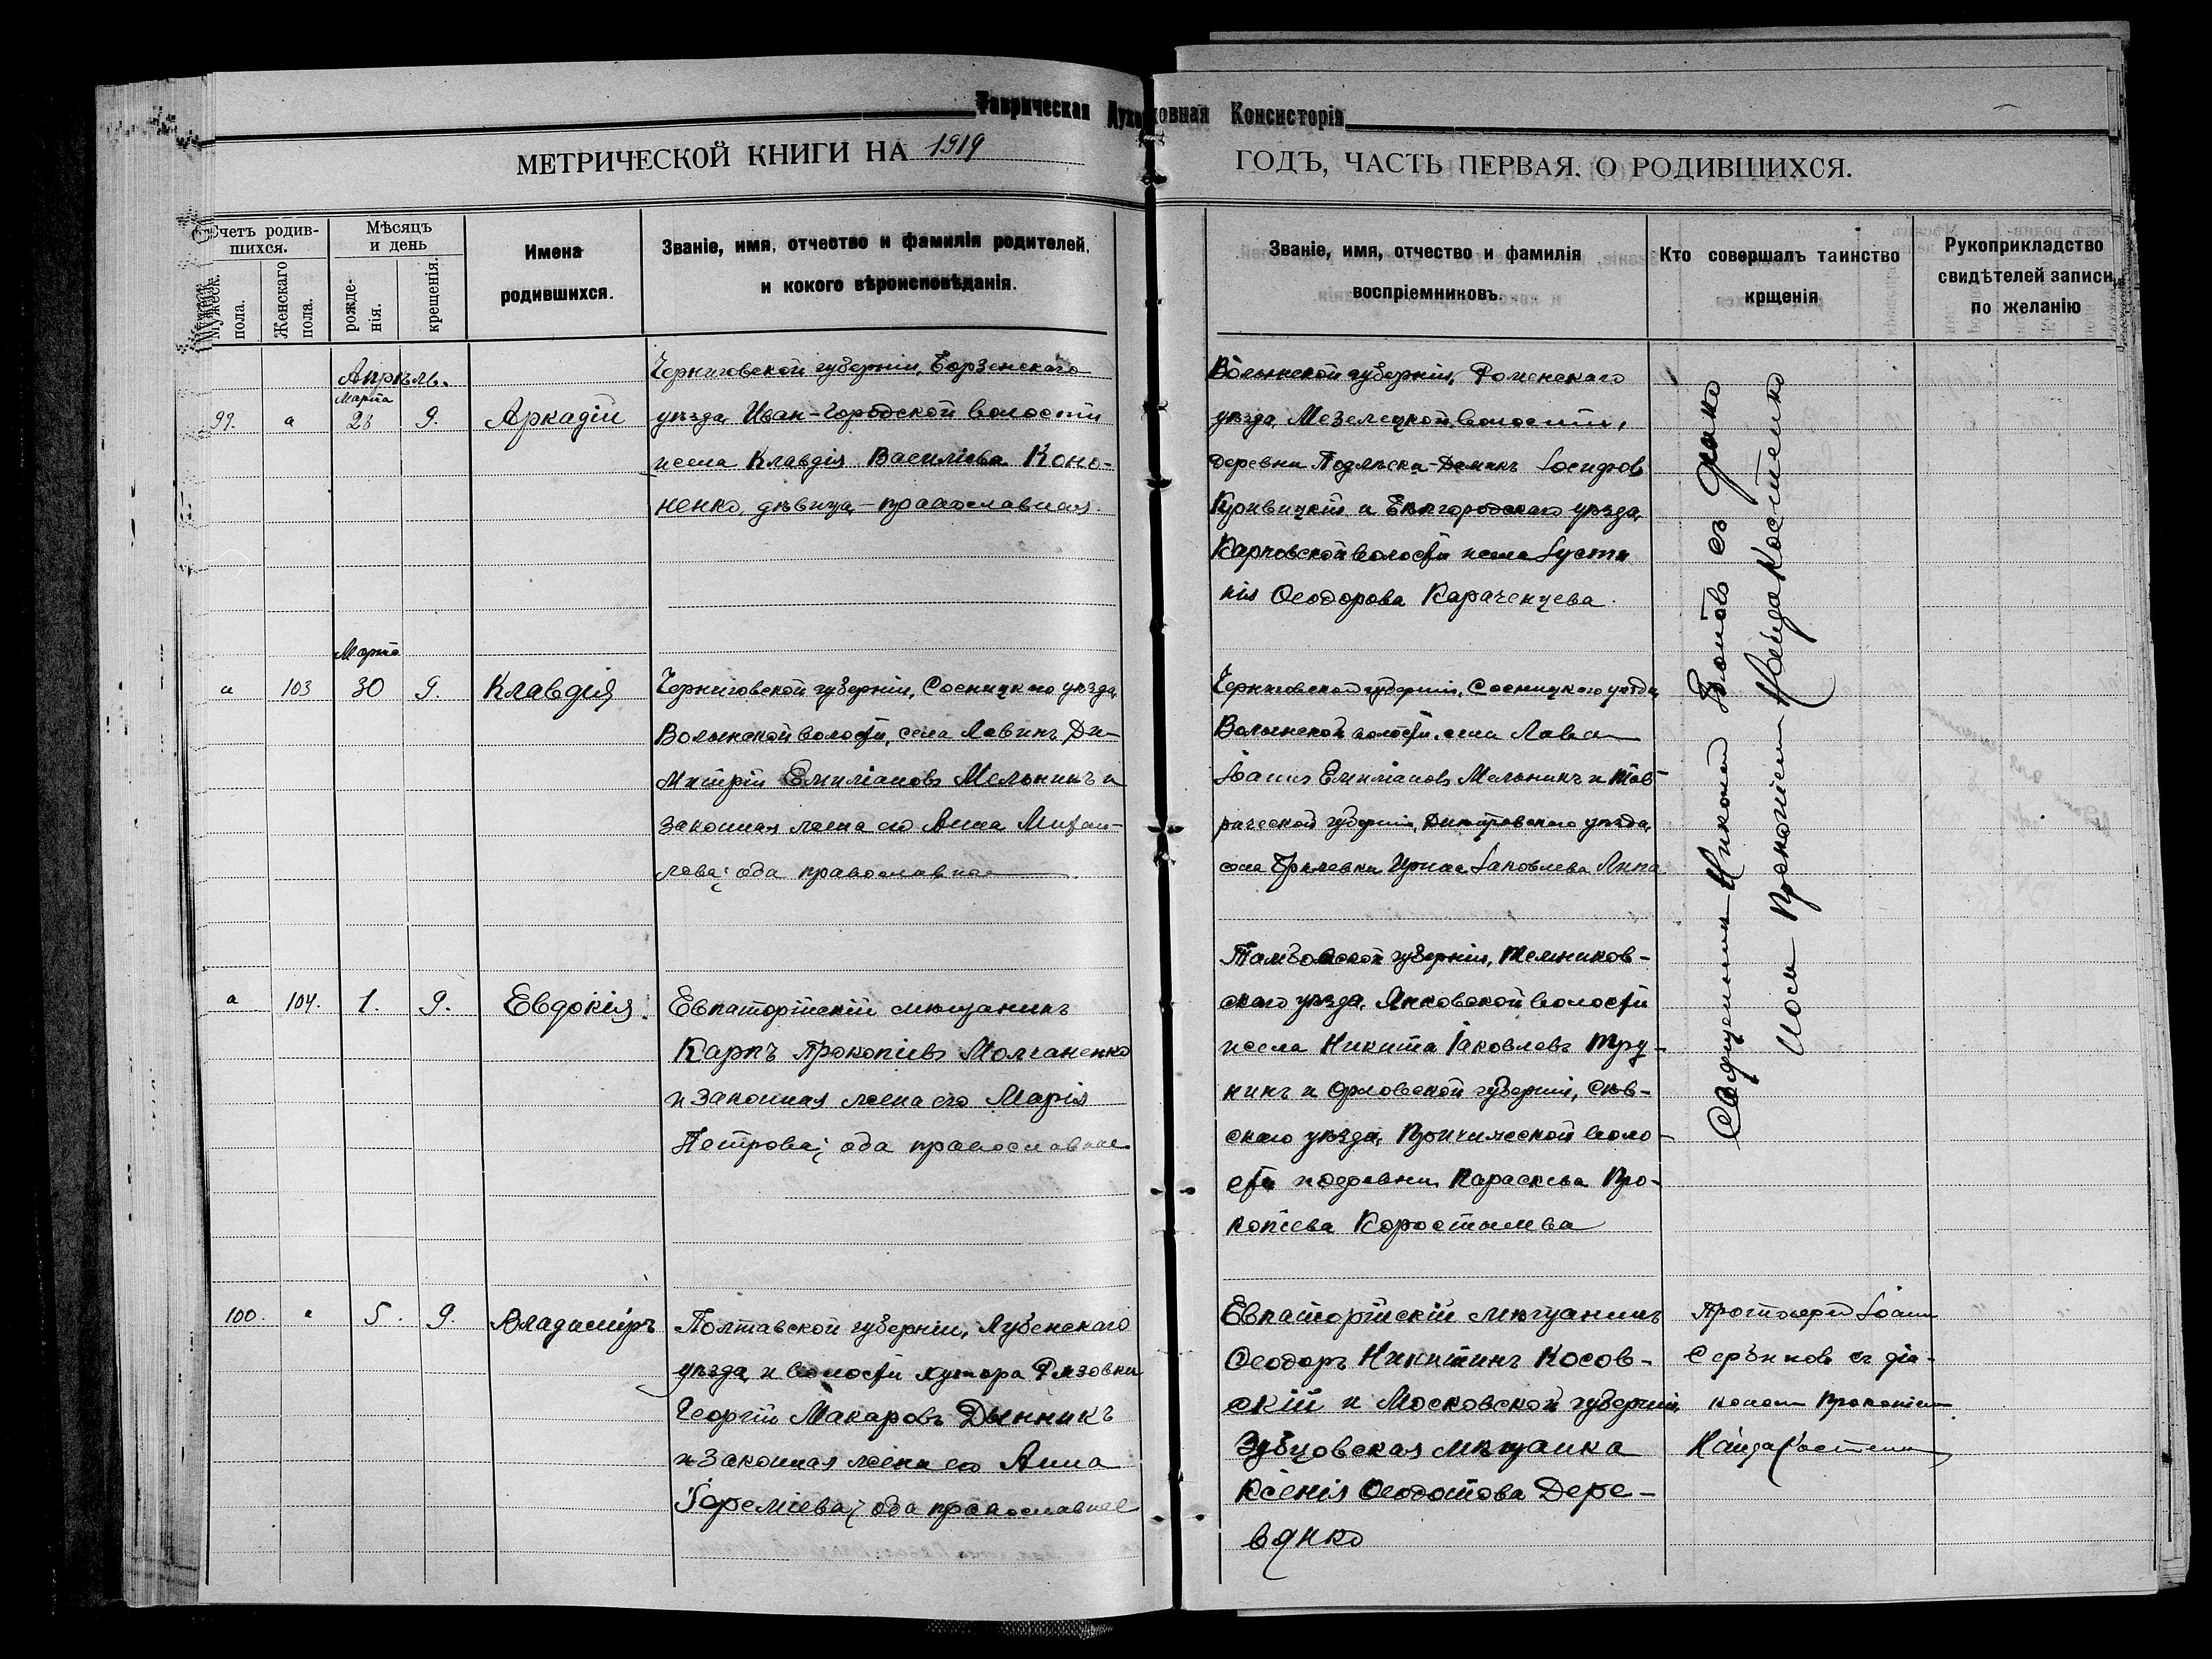 Таврическая Духовная Консисторія
МЕТРИЧЕСКОЙ КНИГИ НА 1919
ГОДЪ, ЧАСТЬ ПЕРВАЯ. О РОДИВШИХСЯ.
Счетъ родив-
шихся.
Мужеск.
пола.
Женскаго
пола.
Мѣсяцъ
и день
рожде-
нія.
крещенія.
Имена
родившихся.
Званіе, имя, отчество и фамилія родителей,
и кокого вѣроисповѣданія.
Званіе, имя, отчество и фамилія
воспріемниковъ.
Кто совершалъ таинство
крщенія
Рукоприкладство
свидѣтелей записи
по желанію
Апрѣль.
Марта
99. „ 28 9. Аркадій
Черниговской губерніи, Борзенскаго
уѣзда, Иван-Городской волости
и села Клавдія Василіева Коно-
ненко, дѣвица, - православная.
Волынской губерніи, Роменскаго
уѣзда, волости,
деревни Іосифовъ
Кривицкій и Бѣлгородскаго уѣзда,
Карповской волости и села Іусти
нія Ѳеодорова Караченцева.
Марта
„ 103 30 9. Клавдія
Черниговской губерніи, Сосницкаго уѣзда,
Волынской волости, села Лавинъ Ди-
митрій Емиліановъ Мельникъ и
законная жена его Анна Михаи-
лова; оба православные
Черниговской губерніи, Сосницкаго уѣзда,
Волынской волости, села
Іоаннъ Емиліановъ Мельникъ и Тав-
рической губерніи, Днѣпровскаго уѣзда,
села Ирина Іаковлева
„ 104. 1. 9. Евдокія.
Евпаторійскій мѣщанинъ
Карпъ Прокопіевъ Молчаненко
и законная жена его Марія
Петрова; оба православные
Тамбовской губерніи, Темников-
скаго уѣзда, волости
и села Никита Іаковлевъ Тру-
нинъ и Орловской губерніи, Сѣв-
скаго уѣзда, воло-
сти и деревни Параскева Про-
копіева
100. „ 5. 9. Владиміръ
Полтавской губерніи, Лубенскаго
уѣзда и волости хутора
Георгій Макаровъ Дынникъ
и законная жена его Анна
Іереміева; оба православные
Евпаторійскій мѣщанинъ
Ѳеодоръ Никитинъ Косов-
скій и Московской губерніи,
Зубцовская мѣщанка
Ксенія Ѳеодотова Дере-
вянко
Священникъ Николай съ діако
ном Прокопіем НайдаКостенко
Протоіерей Іоаннъ
Сербиновъ съ діа-
коном Прокопіем
НайдаКостенко